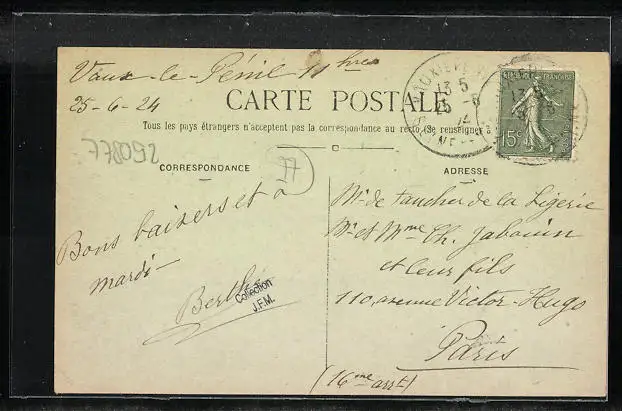 Vaux-le-Pénil 11 hres
25-6-24
CARTE POSTALE
Tous les pays étrangers n'acceptent pas la correspondance au recto (Se renseigner à
778092
77
CORRESPONDANCE
ADRESSE
Bons baisers et à
mardi-
Berthe
Collection
J.F.M.
Mr de la Ligerie
Mr et Mme Ch. Jabouin
et leur fils
110, avenue Victor-Hugo
Paris
(16me arrt)
13 5
25 -6
REPUBLIQUE FRANÇAISE
15c